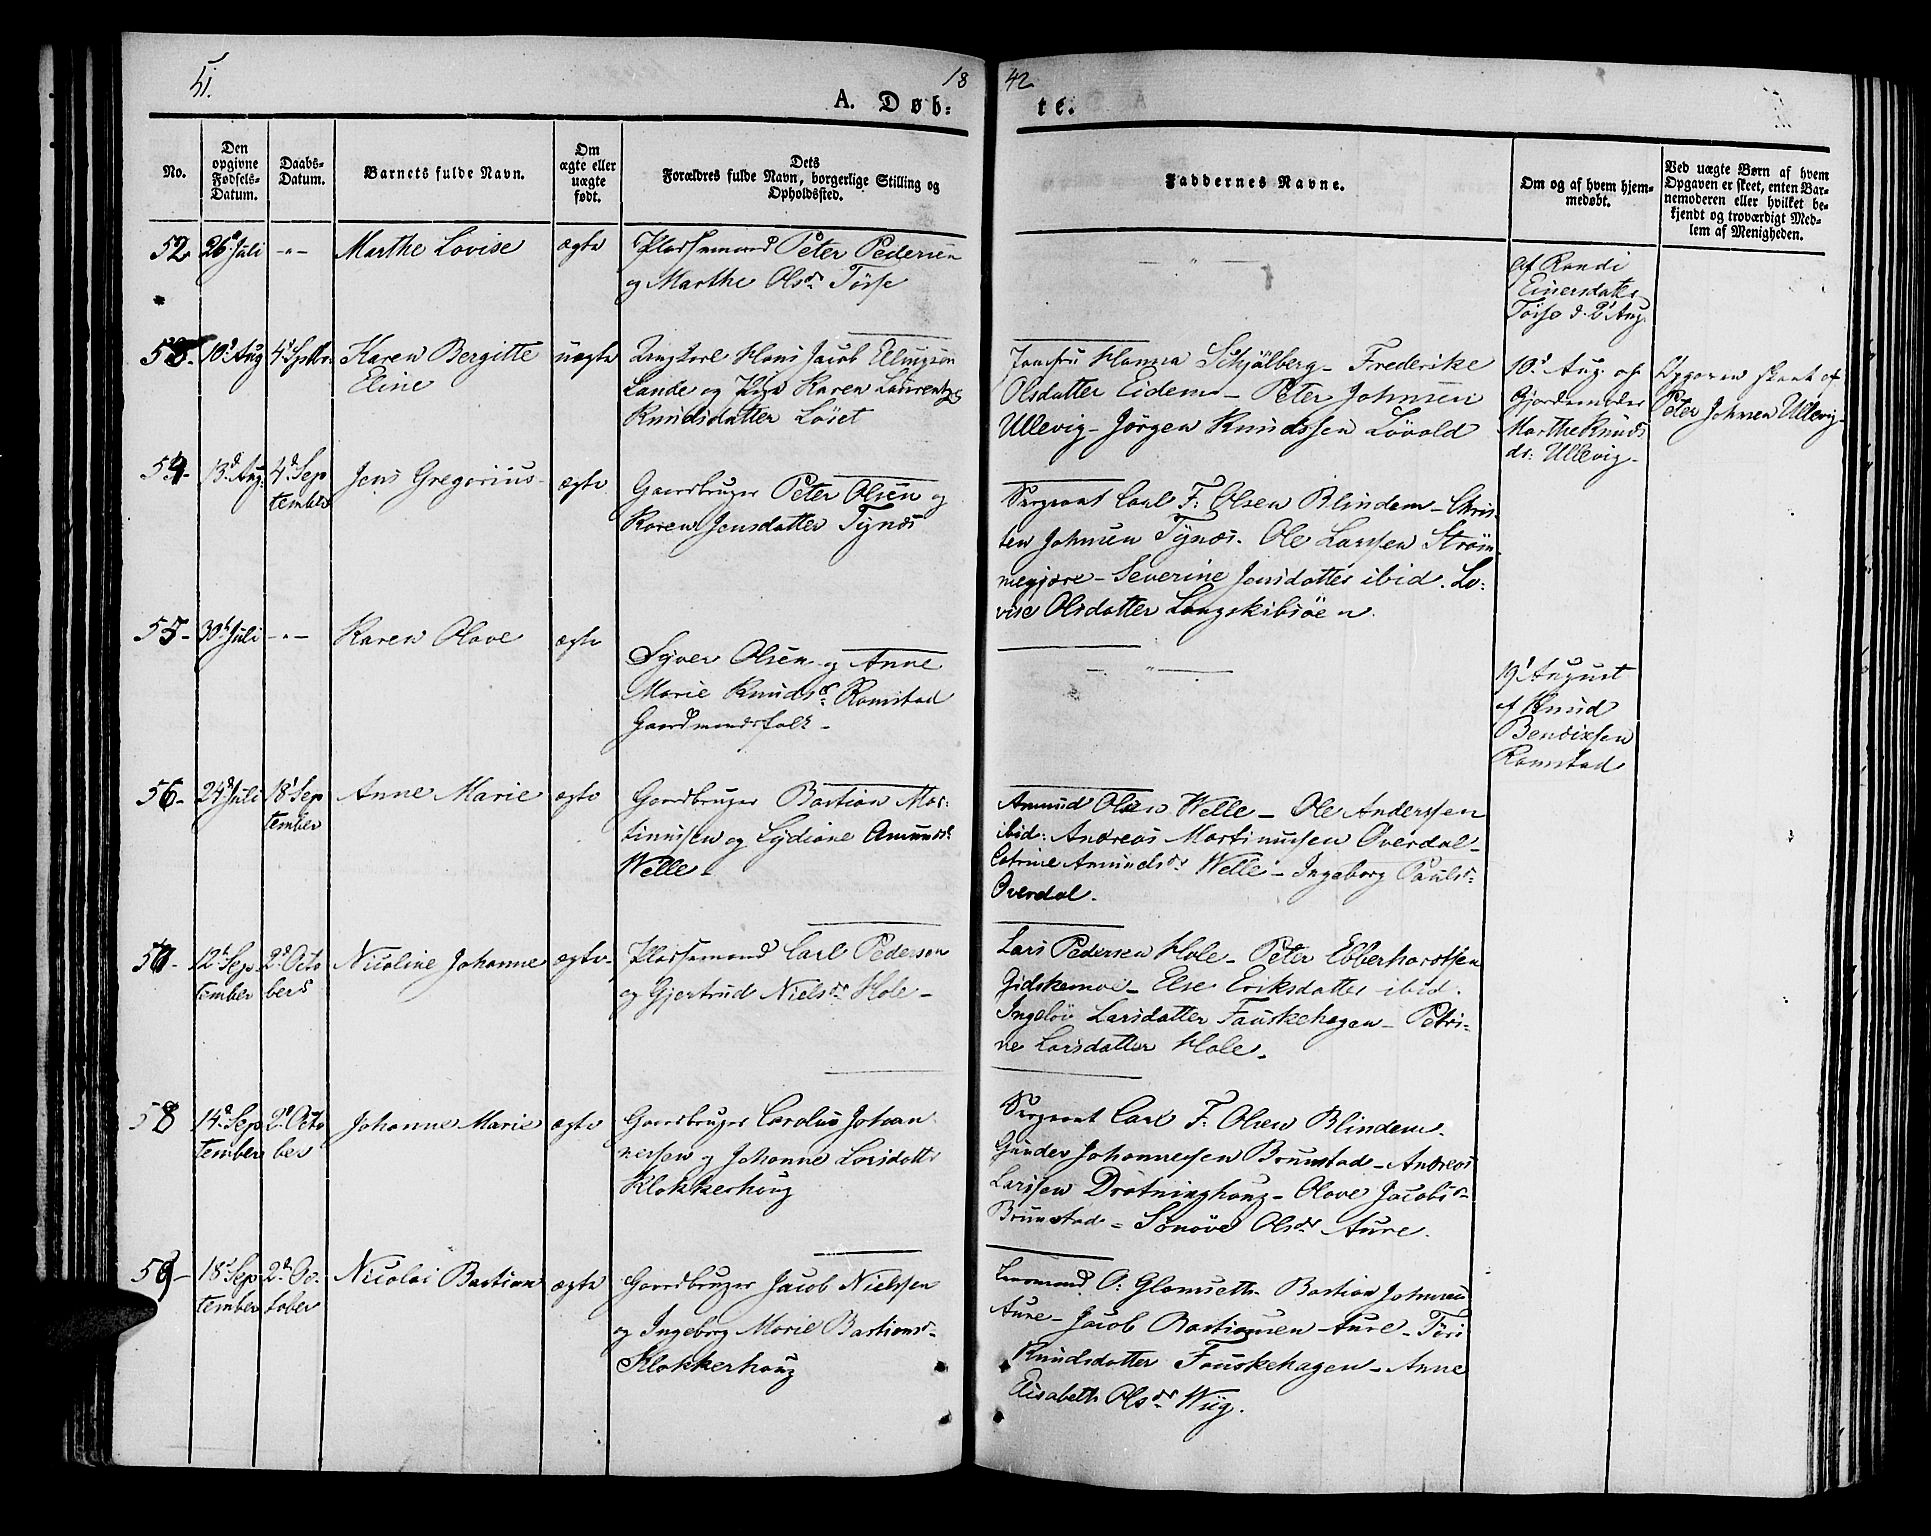 51.
18
42
A. Døb-
te.
No.
Den opgivne Fødsels-Datum.
Daabs-Datum.
Barnets fulde Navn.
Om ægte eller uægte født.
Dets Forældres fulde Navn, borgerlige Stilling og Opholdssted.
Faddernes Navne.
Om og af hvem hjem-medøbt.
Ved uægte Børn af hvem Opgaven er skeet, enten Bar-nemoderen eller hvilket be-kjendt og troværdigt Med-lem af Menigheden.
52 26 Juli -"- Marthe Lovise ægte Pladsemand Peter Pedersen
og Marthe Olsdr Tøsse
- " -
Af Randi
Einersdatter
Tøsse d. 2 Aug.
53 10 Aug 4 Septbr. Karen Bergitte
Eline
uægte
Ungkarl Hans Jacob Ellingsen
Lande og Pige Karen Laurentze
Knudsdatter Løset
Jomfru Hanna Schjølberg - Frederike
Olsdatter Eidem - Peter Johnsen
Ullevig - Jørgen Knudssen Løvold
10 Aug. af
Gjordemoder
Marthe Knuds
dr: Ullevig -
Opgaven skeet af
Peter Johnsen Ullevig -
54 13 Aug: 4 Sep
tember
Jens Gregorius - ægte
Gaardbruger Peter Olsen og
Karen Jensdatter Tynes
Sergeant Carl F: Olsen Blindem - Chris-
ten Johnsen Tynes. Ole Larssen Strøm-
megjære - Severine Jensdatter ibid. Lo-
vise Olsdatter Langskibsøen.
55 - 30 Juli -"- Karen Olave ægte
Syver Olsen og Anne
Marie Knudsdr Ramstad
Gaardmandsfolk -
- " -
19 August
af Knud
Bendixsen
Ramstad
56 - 24 Juli 18 Sep
tember
Anne Marie ægte
Gaardbruger Bastian Mar-
tinussen og Lydiane Amunds
Welle -
Amund Olsen Welle - Ole Anderssen
ibid: Andreas Martinussen Overdal -
Catrine Amundsdr Welle - Ingeborg Paulsdr
Overdal.
57 - 12 Sep
tember
2 Octo
ber
Nicoline Johanne ægte -
Pladsemand Carl Pedersen
og Gjertrud Nielsdr Hole -
Lars Pedersen Hole - Peter Ebberhardtsen
Gidskemoe - Else Eriksdatter ibid.
Ingeløv Larsdatter Fauskehagen - Petri-
ne Larsdatter Hole -
58 14 Sep
tember
2 Octo
ber
Johanne Marie ægte
Gaardbruger Carolus Johan
nessen og Johanne Larsdatter
Klokkerhoug
Sergeant Carl F: Olsen Blindem -
Gunder Johannessen Brunstad - Andreas
Larssen Drotninghoug - Olave Jacobsdr
Brunstad - Sønøve Olsdr Aure.
59 - 18 Sep
tember
2 Oc-
tober
Nicolai Bastian ægte
Gaardbruger Jacob Nielssen
og Ingeborg Marie Bastians -
Klokkerhoug
Lensmand O: Glomseth - Bastian Johnsen
Aure - Jacob Bastiansen Aure - Turi
Knudsdatter Fauskehagen - Anne
Elisabeth Olsdr Wiig.